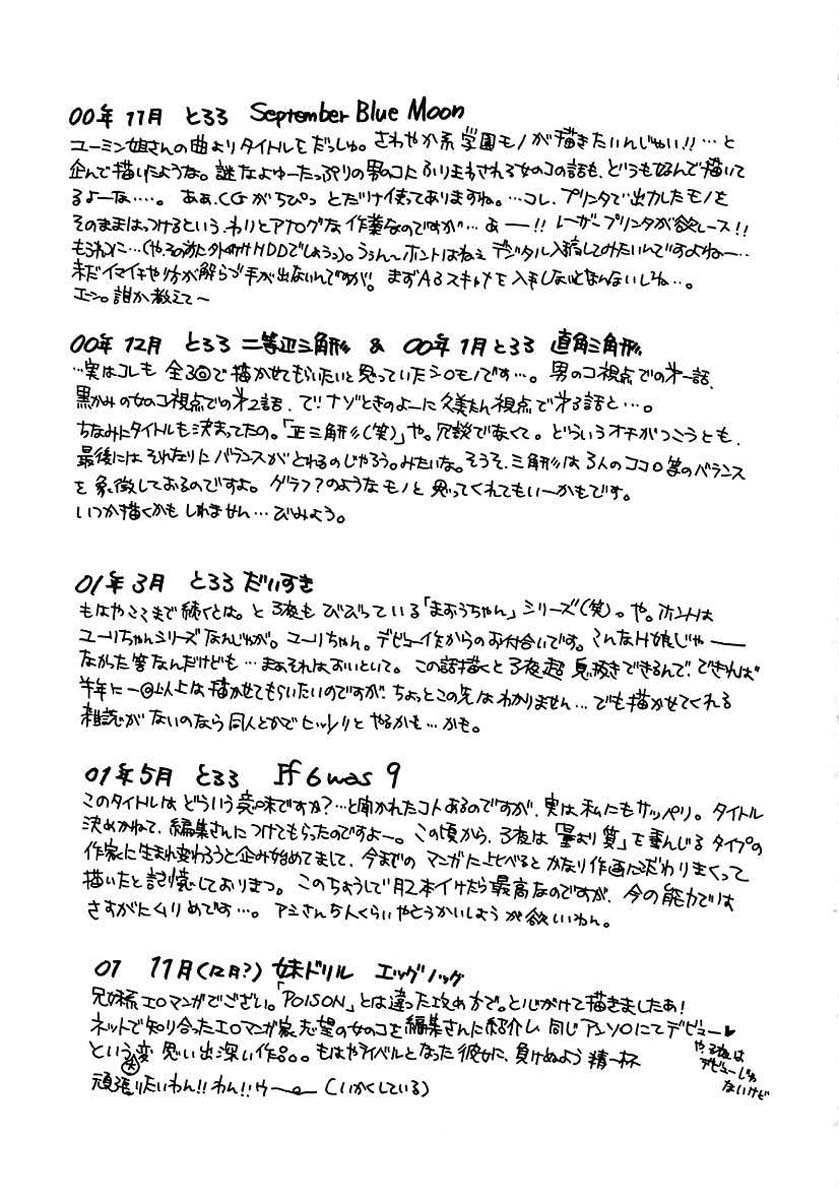 00年 11月 とろろ September Blue Moon
ユーミン姐さんの曲よりタイトルをだっしゅ。さわやか系 学園モノが描きたいんじゃい!!…と
企んで描いたような。謎なよゆーたっぷりの男のコにふりまわされる女のコの話を、どうもなんで描いて
るよーな…。ああ、CGがちぴっとだけ使ってありますね。…コレ、プリンタで出力したモノを
そのままはっつけるという、わりとアナログな作業なのですが…あー!! レーザープリンタが欲しース!!
もうれつに…(や、その前に外付けHDDでしょうっ)。ううん〜ホントはねえ デジタル入稿してみたいんですよねー…
未だイマイチやり方が解らず手が出ないんですが。まずA3スキャナを入手しないとなんないしね…。
エーン。誰か教えて〜
00年 12月 とろろ 二等辺三角形 & 00年 1月 とろろ 直角三角形
…実はコレも 全3回で描かせてもらいたいと思っていたシロモノです…。男のコ視点での第一話、
黒かみの女のコ視点での第2話、で!!ナゾときのよーに久美たん視点で第3話と…。
ちなみにタイトルも決まってたの。「正三角形(笑)」や。冗談でなくて。どういうオチがつこうとも、
最後にはそれなりにバランスがとれるのじゃろう。みたいな。そうそ、三角形は3人のココロ等のバランス
を象徴しておるのですよ。グラフ?のようなモノと思ってくれてもいーかもです。
いつか描くかもしれません…びみよう。
01年 3月 とろろ だいすき
もはやここまで続くとは。と子夜もびびっている「まおうちゃん」シリーズ(笑)。や。ホントは
ユーリちゃんシリーズなんじゃが。ユーリちゃん。デビュー作からのお付合いです。こんなH娘じゃー
なかった筈なんだけども…まあそれはおいといて。この話描くと子夜超 息抜きできるんで、できれば
半年に一回以上は描かせてもらいたいのですが、ちょっとこの先はわかりません…でも描かせてくれる
雑誌がないのなら同人とかでヒッソリとやるかも…かも。
01年 5月 とろろ If 6 was 9
このタイトルはどういう意味ですか?…と聞かれたコトあるのですが、実は私にもサッパリ。タイトル
決めかねて、編集さんにつけてもらったのですよー。この頃から、子夜は「量より質」を重んじるタイプの
作家に生まれ変わろうと企み始めてまして、今までのマンガに比べるとかなり作画にこだわりまくって
描いたと記憶しておりまっ。このちょうしで月2本イけたら最高なのですが、今の能力では
さすがにムリめです…。アシさん5人くらいやとうかいしょうが欲しいわん。
01 11月(12月?) 妹ドリル エッグノッグ
兄妹系エロマンガでござい。「POISON」とは違った攻め方で。と心がけて描きましたあ!
ネットで知り合ったエロマンガ家志望の女のコを編集さんに紹介し 同じアンソロにてデビュー♥
という変 思い出深い作品。もはやライバルとなった彼女に、負けぬよう 精一杯
(笑)
頑張りたいわん!!わん!!ウ〜 (いかくしている)
や、子夜は
デビューじゃ
ないけど